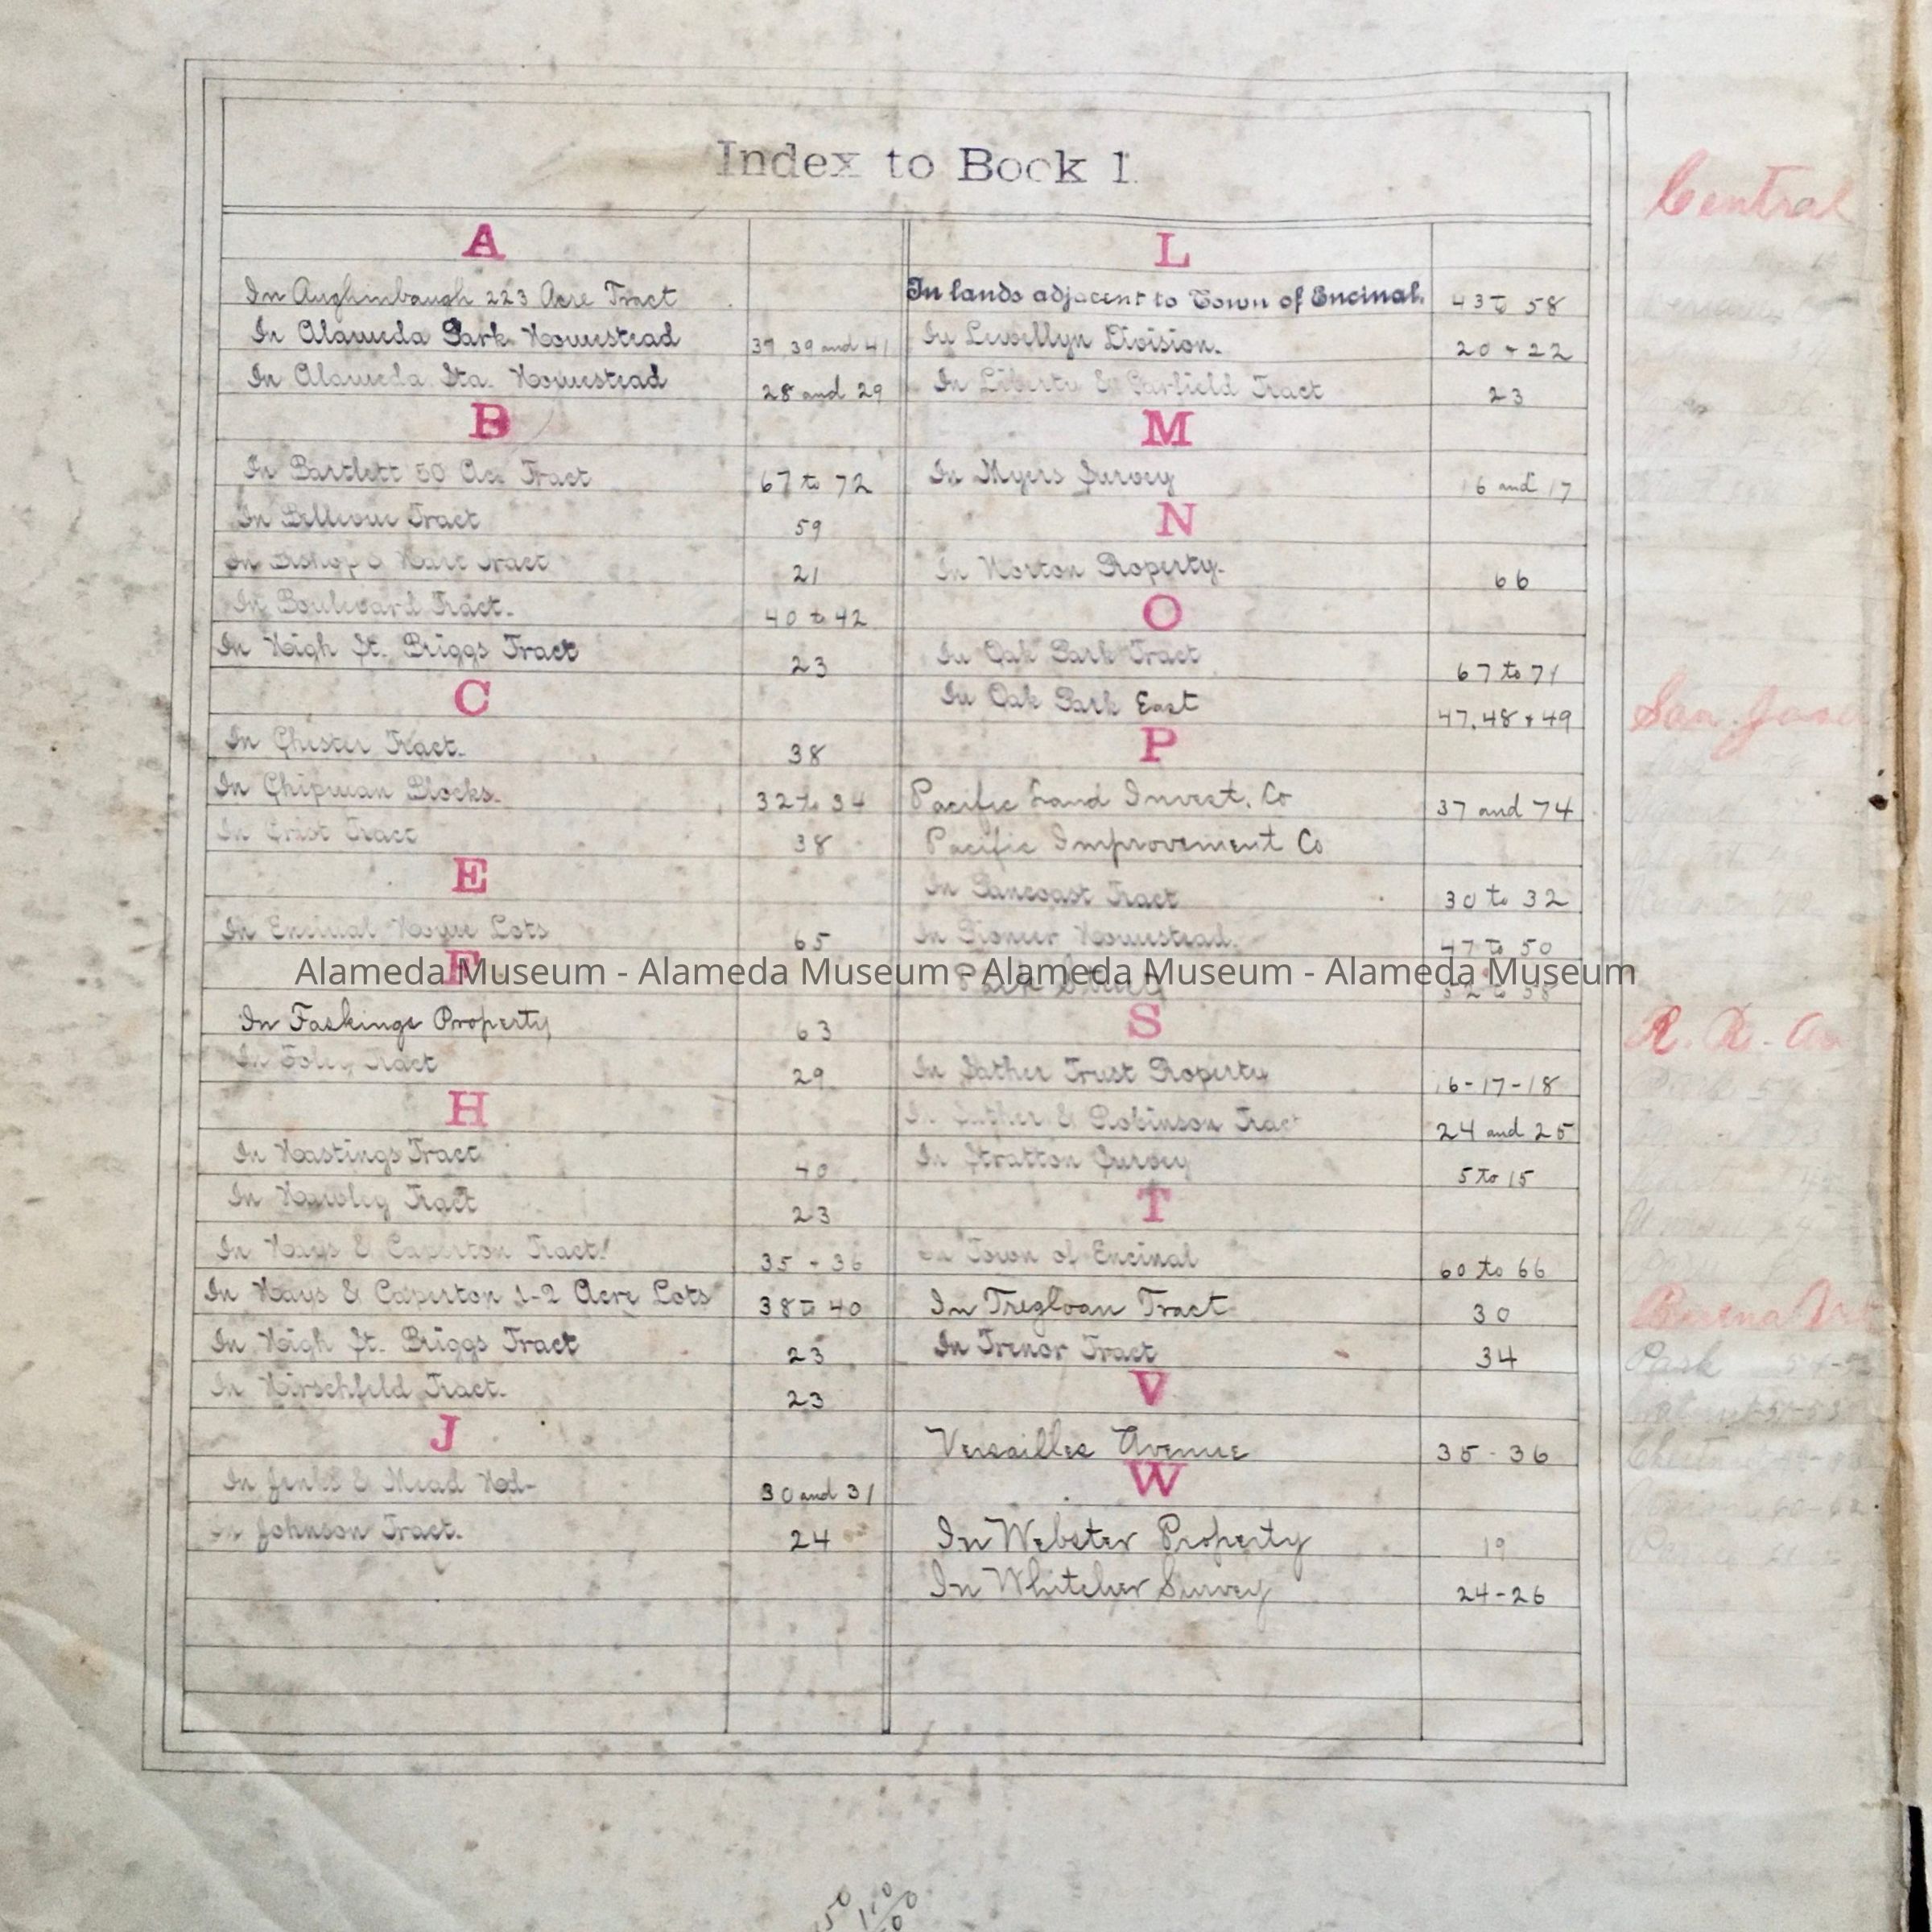 Index to Book 1.
A
In Aughinbaugh 223 Acre Tract
In Alameda Park Homestead 37 39 and 41
In Alameda Sta. Homestead 28 and 29
B
In Bartlett 50 Ac. Tract 67 to 72
In Bellevue Tract 59
In Bishop & Hart Tract 21
In Boulevard Tract. 40 to 42
In High St. Briggs Tract 23
C
In Chester Tract. 38
In Chipman Blocks. 32 to 34
In Crist Tract 38
E
In Encinal Home Lots 65
F
In Faskings Property 63
In Foley Tract 29
H
In Hastings Tract 40
In Hawley Tract 23
In Hays & Caperton Tract. 35 - 36
In Hays & Caperton 1-2 Acre Lots 38 to 40
In High St. Briggs Tract 23
In Hirschfeld Tract. 23
J
In Jenks & Mead Hd- 30 and 31
In Johnson Tract. 24
L
In lands adjacent to Town of Encinal. 43 to 58
In Lewellyn Division. 20 + 22
In Liberty & Garfield Tract 23
M
In Myers Survey 16 and 17
N
In Norton Property. 66
O
In Oak Park Tract 67 to 71
In Oak Park East 47, 48 + 49
P
Pacific Land Invest. Co 37 and 74
Pacific Improvement Co
In Pancoast Tract 30 to 32
In Pioneer Homestead. 47 to 50
Park Street 52 to 58
S
In Sather Trust Property 16-17-18
In Sather & Robinson Tract 24 and 25
In Stratton Survey 5 to 15
T
In Town of Encinal 60 to 66
In Tregloan Tract 30
In Trenor Tract 34
V
Versailles Avenue 35 - 36
W
In Webster Property 19
In Whitcher Survey 24-26
Alameda Museum - Alameda Museum - Alameda Museum - Alameda Museum
Central
San Jose
R. R. Av
Buena Vis
Park